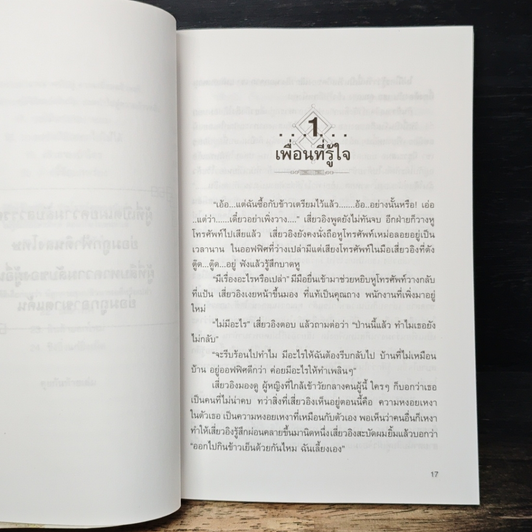 1
เพื่อนที่รู้ใจ
“เอ้อ...แต่ฉันซื้อกับข้าวเตรียมไว้แล้ว.......อ้อ..อย่างนั้นหรือ! เอ่อ
..แต่ว่า......เดี๋ยวอย่าเพิ่งวาง....” เสี่ยวอิงพูดยังไม่ทันจบ อีกฝ่ายก็วางหู
โทรศัพท์ไปเสียแล้ว เสี่ยวอิงยังคงนั่งถือหูโทรศัพท์เหม่อลอยอยู่เป็น
เวลานาน ในออฟฟิศที่ว่างเปล่ามีแต่เสียงโทรศัพท์ในมือเสี่ยวอิงที่ดัง
ตู๊ด...ตู๊ด...อยู่ ฟังแล้วรู้สึกบาดหู
“มีเรื่องอะไรหรือเปล่า” มีมือยื่นเข้ามาช่วยหยิบหูโทรศัพท์วางกลับ
ที่แป้น เสี่ยวอิงเงยหน้าขึ้นมอง ที่แท้เป็นคุณถาง พนักงานที่เพิ่งมาอยู่
ใหม่
“ไม่มีอะไร” เสี่ยวอิงตอบ แล้วถามต่อว่า “ป่านนี้แล้ว ทำไมเธอยัง
ไม่กลับ”
“จะรีบร้อนไปทำไม มีอะไรให้ฉันต้องรีบกลับไป บ้านที่ไม่เหมือน
บ้าน อยู่ออฟฟิศดีกว่า ค่อยมีอะไรให้ทำเพลินๆ”
เสี่ยวอิงมองดู ผู้หญิงที่ใกล้เข้าวัยกลางคนผู้นี้ ใครๆ ก็บอกว่าเธอ
เป็นคนที่ไม่น่าคบ ทว่าสิ่งที่เสี่ยวอิงเห็นอยู่ตอนนี้คือ ความหงอยเหงา
ในตัวเธอ เป็นความหงอยเหงาที่เหมือนกับตัวเอง พอเห็นว่าคนอื่นก็เหงา
ทำให้เสี่ยวอิงรู้สึกผ่อนคลายขึ้นมานิดหนึ่งเสี่ยวอิงสะบัดผมยิ้มแล้วบอกว่า
“ออกไปกินข้าวเย็นด้วยกันไหม ฉันเลี้ยงเอง”
17